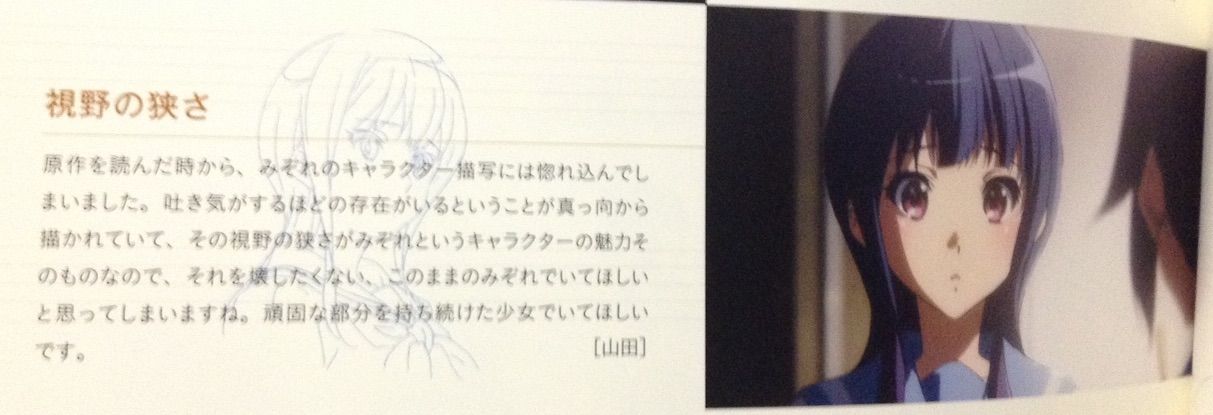 視野の狭さ
原作を読んだ時から、みぞれのキャラクター描写には惚れ込んでし
まいました。吐き気がするほどの存在がいるということが真っ向から
描かれていて、その視野の狭さがみぞれというキャラクターの魅力そ
のものなので、それを壊したくない、このままのみぞれでいてほしい
と思ってしまいますね。頑固な部分を持ち続けた少女でいてほしい
です。
[山田]